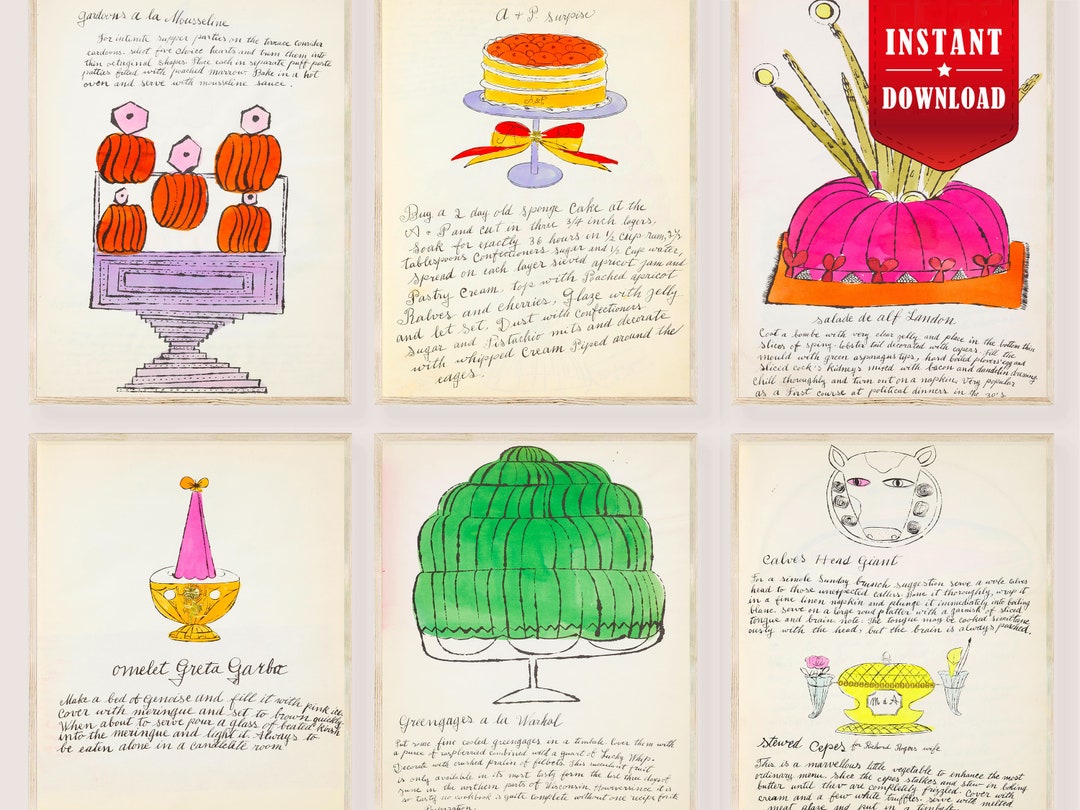 gardoons a la Mousseline
For intimite supper parties on the terrace consider
cardoons. select five choice hearts and trim them into
thin octagonal shapes. Place each in separate puff paste
patties filled with poached marrow. Bake in a hot
oven and serve with mousseline sauce.
A + P. Surpise
A+P
Buy a 2 day old sponge Cake at the
A + P and cut in three 3/4 inch layers,
Soak for exactly 36 hours in 1/2 cup rum, 3 1/2
tablespoons Confectioners sugar and 1/2 Cup water,
Spread on each layer sieved apricot jam and
Pastry Cream. top with Poached apricot
Halves and cherries, Glaze with jelly
and let set. Dust with Confectioners
Sugar and Pistachio nuts and decorate
with whipped Cream Piped around the
edges.
INSTANT
DOWNLOAD
salade de alf Landon
Coat a bombe with very clear jelly and place in the bottom thin
slices of spiny-lobster tail decorated with capers. fill the
mould with green asparagus tips, hard boiled plovers' egg and
sliced cock's kidneys mixed with bacon and dandelion dressing
Chill thoroughly and turn out on a napkin. Very popular
as a First course at political dinners in the 30's
omelet Greta Garbo
Make a bed of Genoise and fill it with pink ice
Cover with meringue and set to brown quickly
When about to serve pour a glass of heated Kirsh
into the meringue and light it. Always to
be eaten alone in a candlelite room
Greengages a la Warhol
Put some fine cooled greengages in a timbale. Cover them with
a puree of raspberries combined with a quart of Lucky Whip.
Decorate with crushed pralin of filberts. This succulent fruit
is only available in its most tasty form the last three days of
June in the northern parts of Wisconsin. However since it is
so tasty no cookbook is quite complete without one recipe for its
Calves Head Giant
For a simple Sunday brunch suggestion serve a whole calves
head to those unexpected callers. Bone it thoroughly, wrap it
in a fine linen napkin and plunge it immediately into boiling
blanc. serve on a large round platter with a garnish of sliced
tongue and brain. note: The tongue may be cooked simultane
ously with the head, but the brain is always poached.
M d A
Stewed Cepes for Richard Rogers wife
This is a marvellous little vegetable to enhance the most
ordinary menu. Slice the cepes stalkes and stew in boiling
butter until they are completely frizzled. Cover with
cream and a few white truffles. serve with melted
meat glaze and